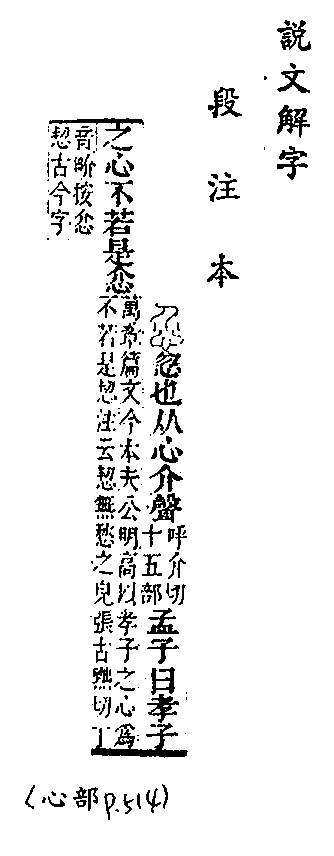 説文解字
段注本
忽也从心介聲呼介切十五部孟子曰孝子
之心不若是忿萬章篇文今本夫公明高以孝子之心爲不若是恝注云恝無愁之皃張古黠切丁
音界按忿恝古今字
(心部 p.514)